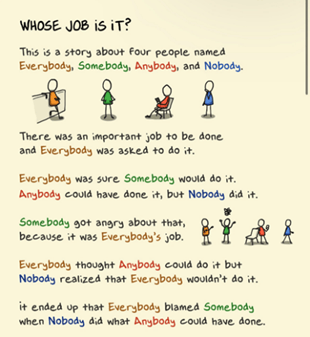 WHOSE JOB iS iT?
This is a story about four people named
Everybody, Somebody, Anybody, and Nobody.
There was an important job to be done
and Everybody was asked to do it.
Everybody was sure Somebody would do it.
Anybody could have done it, but Nobody did it.
Somebody got angry about that,
because it was Everybody's job.
Everybody thought Anybody could do it but
Nobody realized that Everybody wouldn't do it.
it ended up that Everybody blamed Somebody
when Nobody did what Anybody could have done.